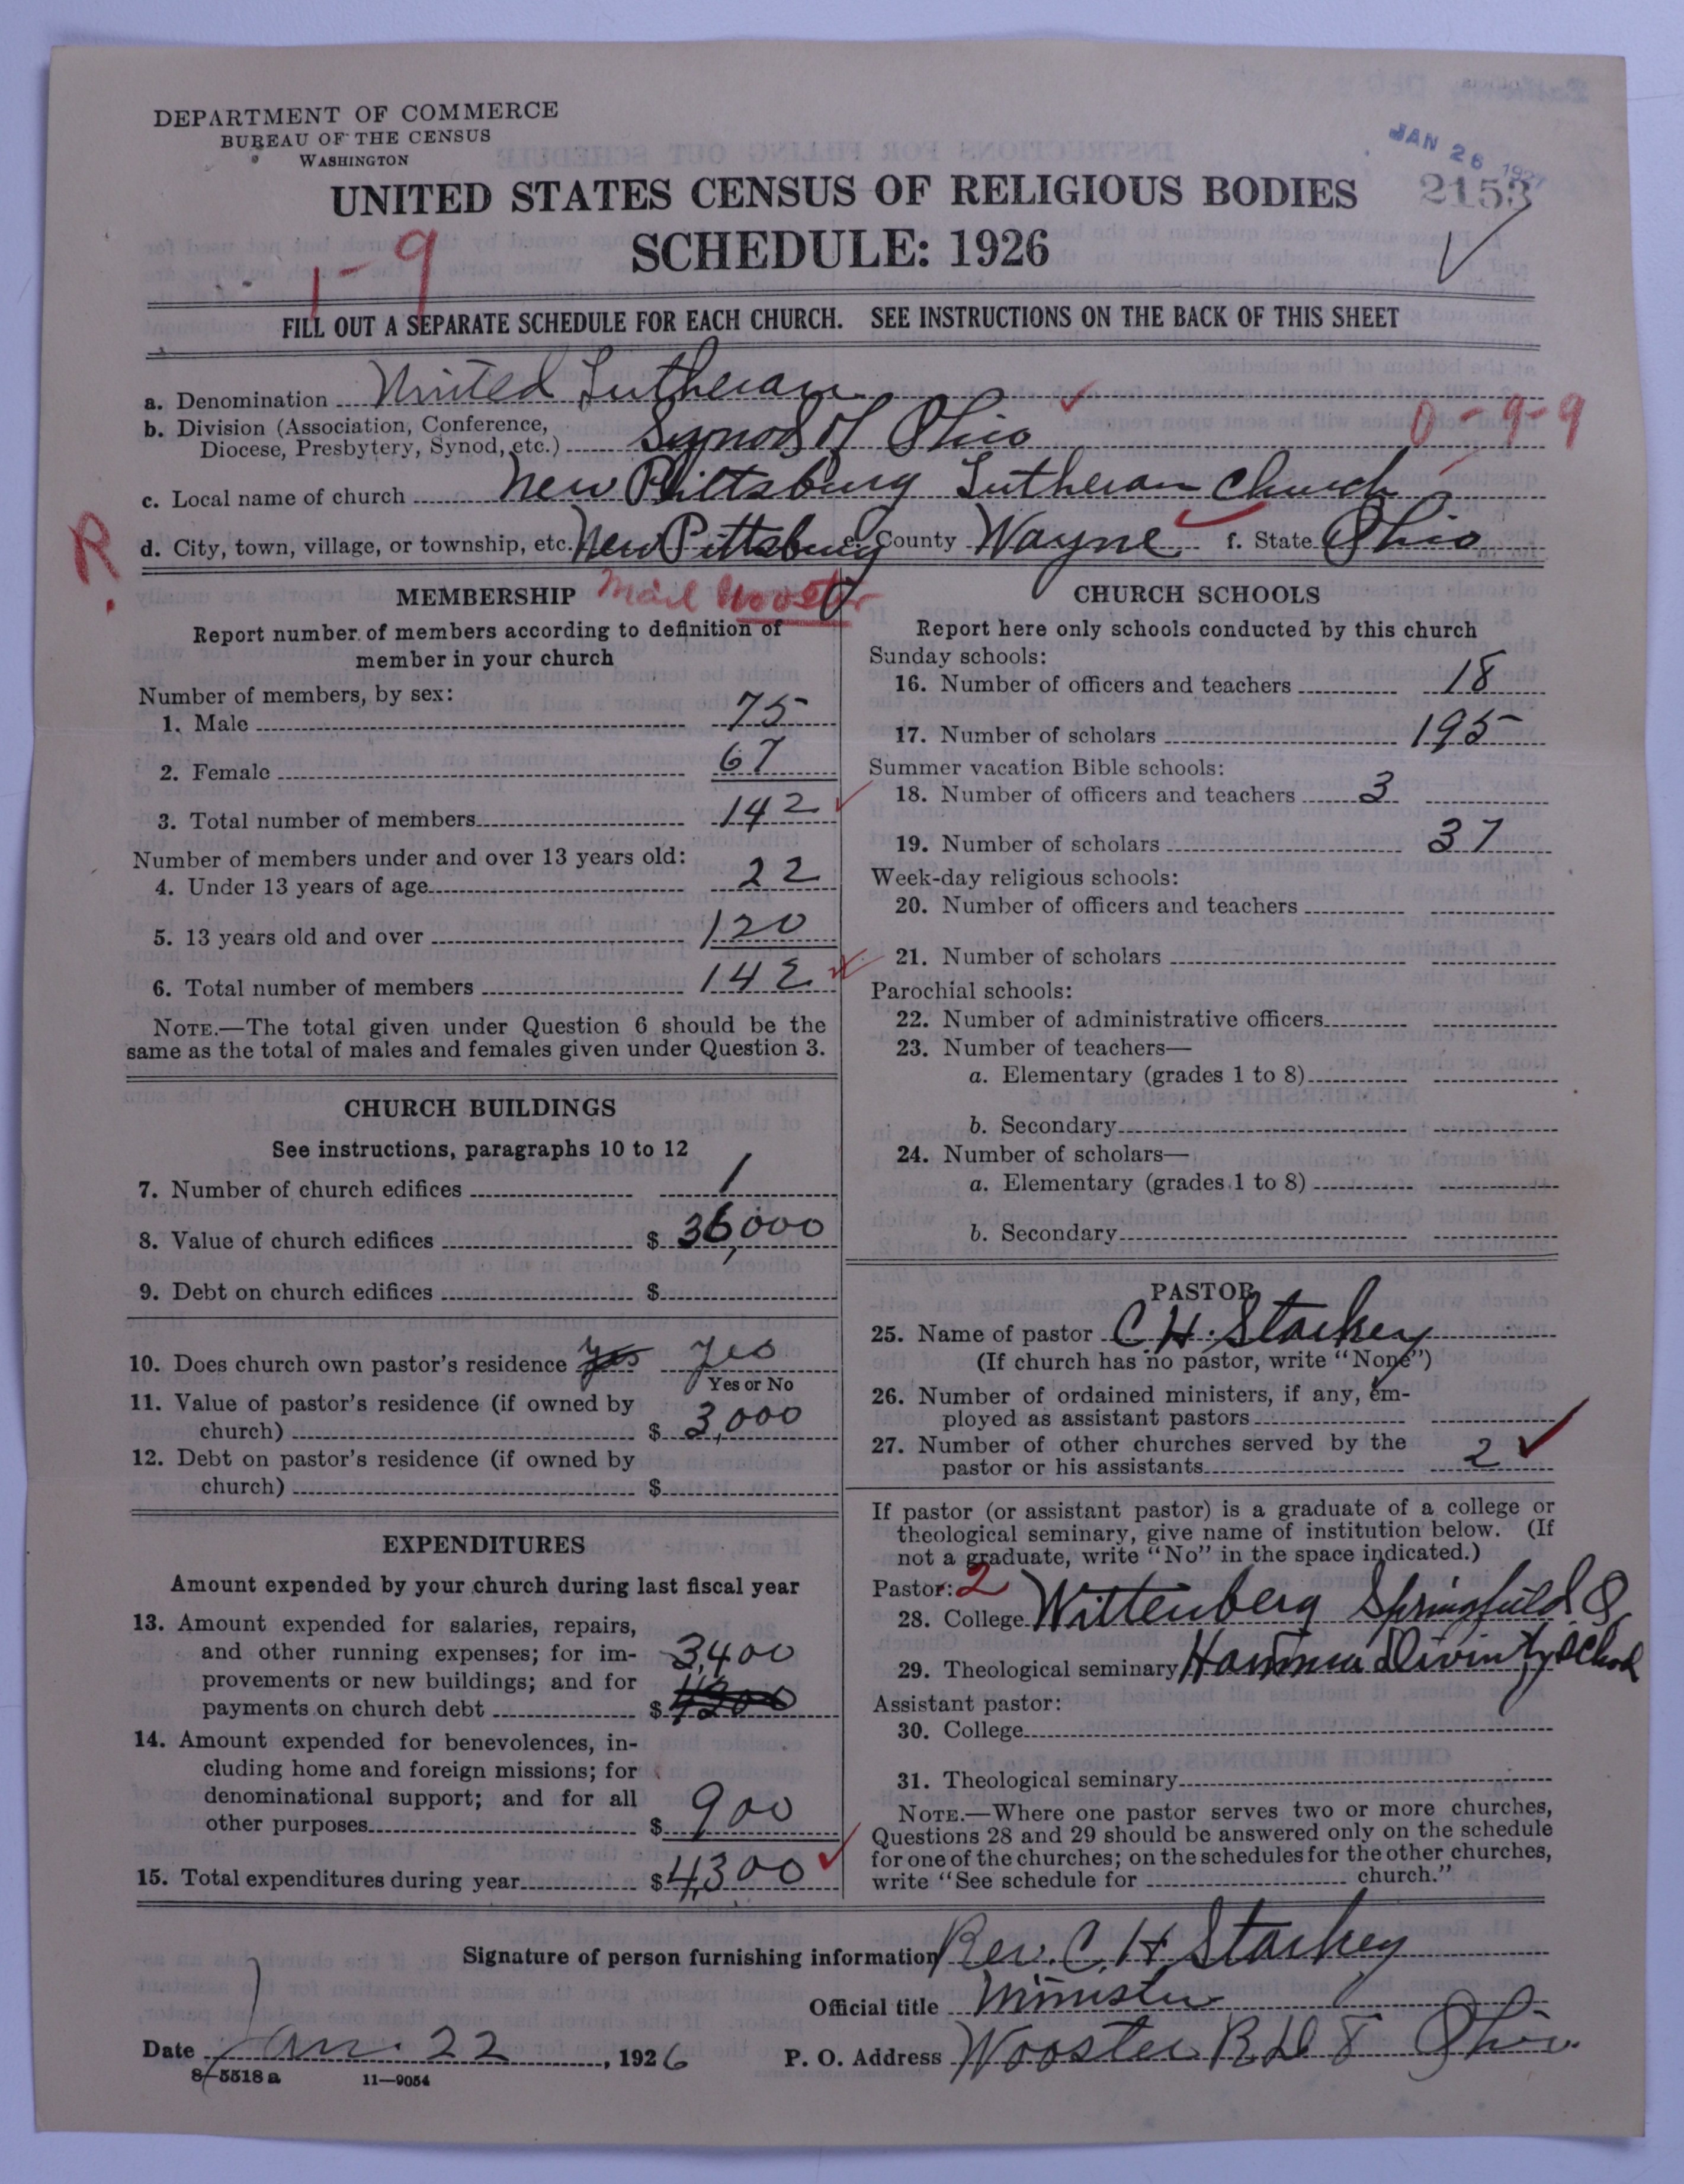 DEPARTMENT OF COMMERCE
BUREAU OF THE CENSUS
WASHINGTON
JAN 26 1927
2153
UNITED STATES CENSUS OF RELIGIOUS BODIES
SCHEDULE: 1926
1-9
FILL OUT A SEPARATE SCHEDULE FOR EACH CHURCH. SEE INSTRUCTIONS ON THE BACK OF THIS SHEET
a. Denomination United Lutheran
b. Division (Association, Conference,
Diocese, Presbytery, Synod, etc.) Synod of Ohio 0-9-9
c. Local name of church New Pittsburg Lutheran Church
R.
d. City, town, village, or township, etc. New Pittsburg e. County Wayne f. State Ohio
MEMBERSHIP Mail Wooster
Report number of members according to definition of
member in your church
Number of members, by sex:
1. Male 75
2. Female 67
3. Total number of members 142
Number of members under and over 13 years old:
4. Under 13 years of age 22
5. 13 years old and over 120
6. Total number of members 142
NOTE.—The total given under Question 6 should be the
same as the total of males and females given under Question 3.
CHURCH BUILDINGS
See instructions, paragraphs 10 to 12
7. Number of church edifices 1
8. Value of church edifices $ 36,000
9. Debt on church edifices $
10. Does church own pastor's residence yes yes
Yes or No
11. Value of pastor's residence (if owned by
church) $ 3,000
12. Debt on pastor's residence (if owned by
church) $
EXPENDITURES
Amount expended by your church during last fiscal year
13. Amount expended for salaries, repairs,
and other running expenses; for im-
3,400
provements or new buildings; and for
payments on church debt $
14. Amount expended for benevolences, in-
cluding home and foreign missions; for
denominational support; and for all
other purposes $ 900
15. Total expenditures during year $ 4,300
CHURCH SCHOOLS
Report here only schools conducted by this church
Sunday schools:
16. Number of officers and teachers 18
17. Number of scholars 195
Summer vacation Bible schools:
18. Number of officers and teachers 3
19. Number of scholars 37
Week-day religious schools:
20. Number of officers and teachers
21. Number of scholars
Parochial schools:
22. Number of administrative officers
23. Number of teachers—
a. Elementary (grades 1 to 8)
b. Secondary
24. Number of scholars—
a. Elementary (grades 1 to 8)
b. Secondary
PASTOR
25. Name of pastor C. H. Starkey
(If church has no pastor, write "None")
26. Number of ordained ministers, if any, em-
ployed as assistant pastors
27. Number of other churches served by the
pastor or his assistants 2
If pastor (or assistant pastor) is a graduate of a college or
theological seminary, give name of institution below. (If
not a graduate, write "No" in the space indicated.)
Pastor: 2
28. College Wittenberg Springfield O
29. Theological seminary Hamma Divinity School
Assistant pastor:
30. College
31. Theological seminary
NOTE.—Where one pastor serves two or more churches,
Questions 28 and 29 should be answered only on the schedule
for one of the churches; on the schedules for the other churches,
write "See schedule for church."
Signature of person furnishing information Rev. C. H. Starkey
Official title Minister
Date Jan. 22, 1926 P. O. Address Wooster R D 8 Ohio
8—5518 a 11—9054